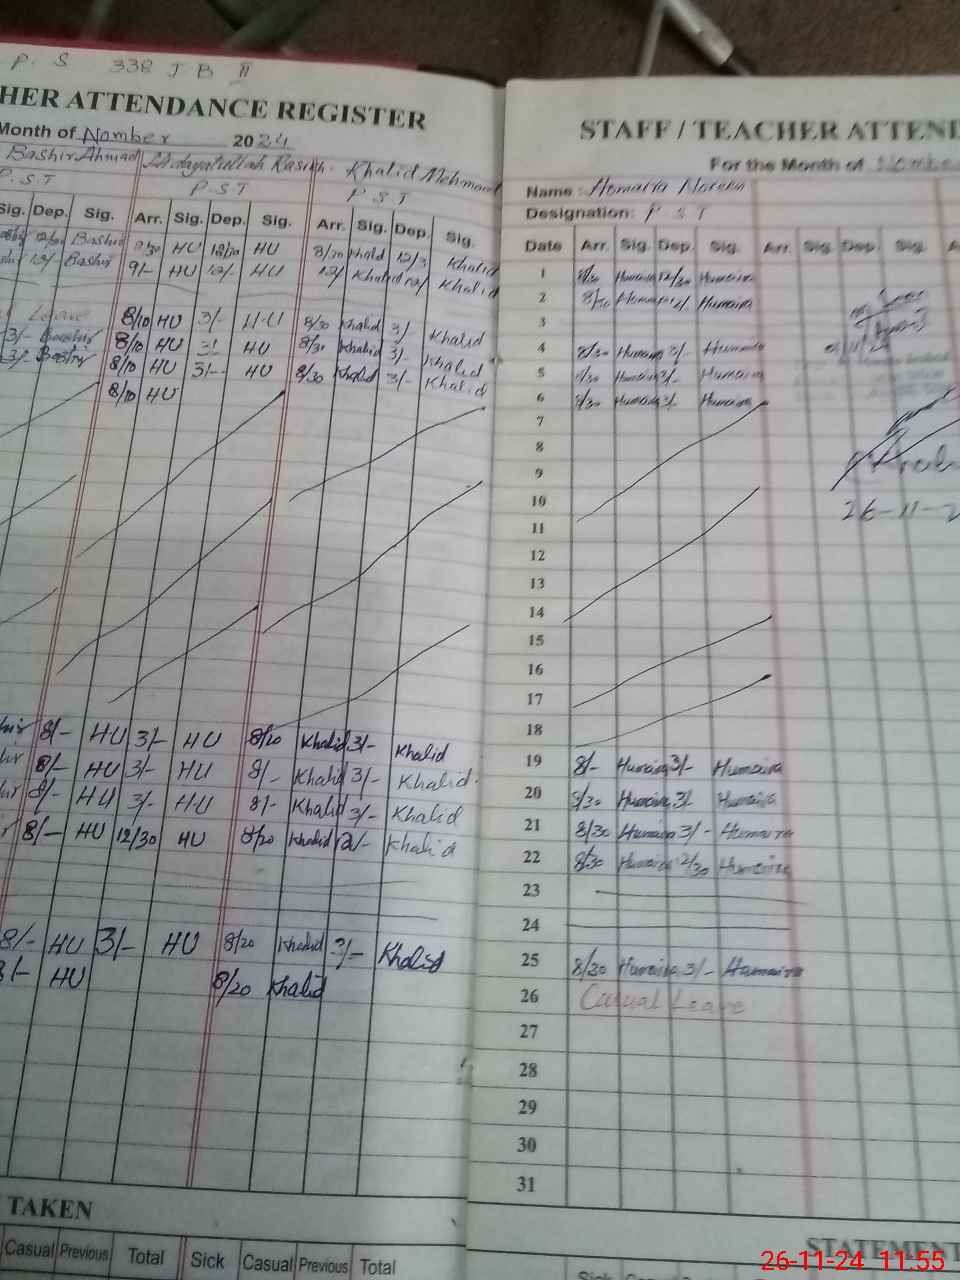 P. S 338 J B II
HER ATTENDANCE REGISTER
Month of Nomber 2024
Bashir Ahmad Hidayatullah Khalid Mehmood
P.S.T P.S.T P S T
Sig. Dep. Sig. Arr. Sig. Dep. Sig. Arr. Sig. Dep. Sig.
Bashir HU 12/30 HU 8/30 Khalid 12/3 Khalid
12/- Bashir 9/- HU 12/- HU Khalid Khalid
Leave 8/10 HU 3/- HU 8/30 Khalid 3/ Khalid
3/- Bashir 8/10 HU 3/ HU 8/30 Khalid 3/- Khalid
3/- Bashir 8/10 HU 3/- HU 8/30 Khalid 3/- Khalid
8/10 HU
8/- HU 3/- HU 8/20 Khalid 3/- Khalid
8/- HU 3/- HU 8/- Khalid 3/- Khalid
8/- HU 3/- HU 8/- Khalid 3/- Khalid
8/- HU 12/30 HU 8/20 Khalid 12/- Khalid
8/- HU 3/- HU 8/20 Khalid 3/- Khalid
8/- HU 8/20 Khalid
TAKEN
Casual Previous Total Sick Casual Previous Total
STAFF / TEACHER ATTEND
For the Month of Nombe
Name :
Designation: P S T
Date Arr. Sig. Dep. Sig. Arr. Sig. Dep. Sig. A
1 8/30 Humaira 12/30 Humaira
2 8/30 Humaira 12/ Humaira
3
4 8/30 Humaira 3/- Humaira
5 8/30 Humaira 3/- Humaira
6 8/30 Humaira 3/- Humaira
7
8
9
10
26-11-2
11
12
13
14
15
16
17
18
19 8/- Humaira 3/- Humaira
20 8/30 Humaira 3/- Humaira
21 8/30 Humaira 3/- Humaira
22 8/30 Humaira 12/30 Humaira
23
24
25 8/30 Humaira 3/- Humaira
26 Casual Leave
27
28
29
30
31
STATEMENT
Sick Casual Previous Total
26-11-24 11:55